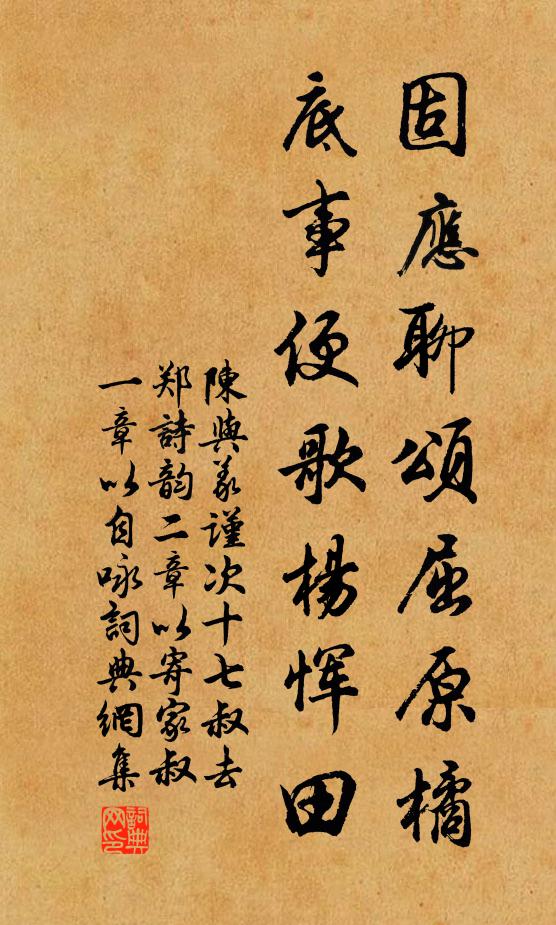 固應聊頌屈原橘
底事便歌楊惲田
陳與義謹次十七叔去
郑詩韵二章以寄家叔
一章以自咏詞典網集
詞典网印